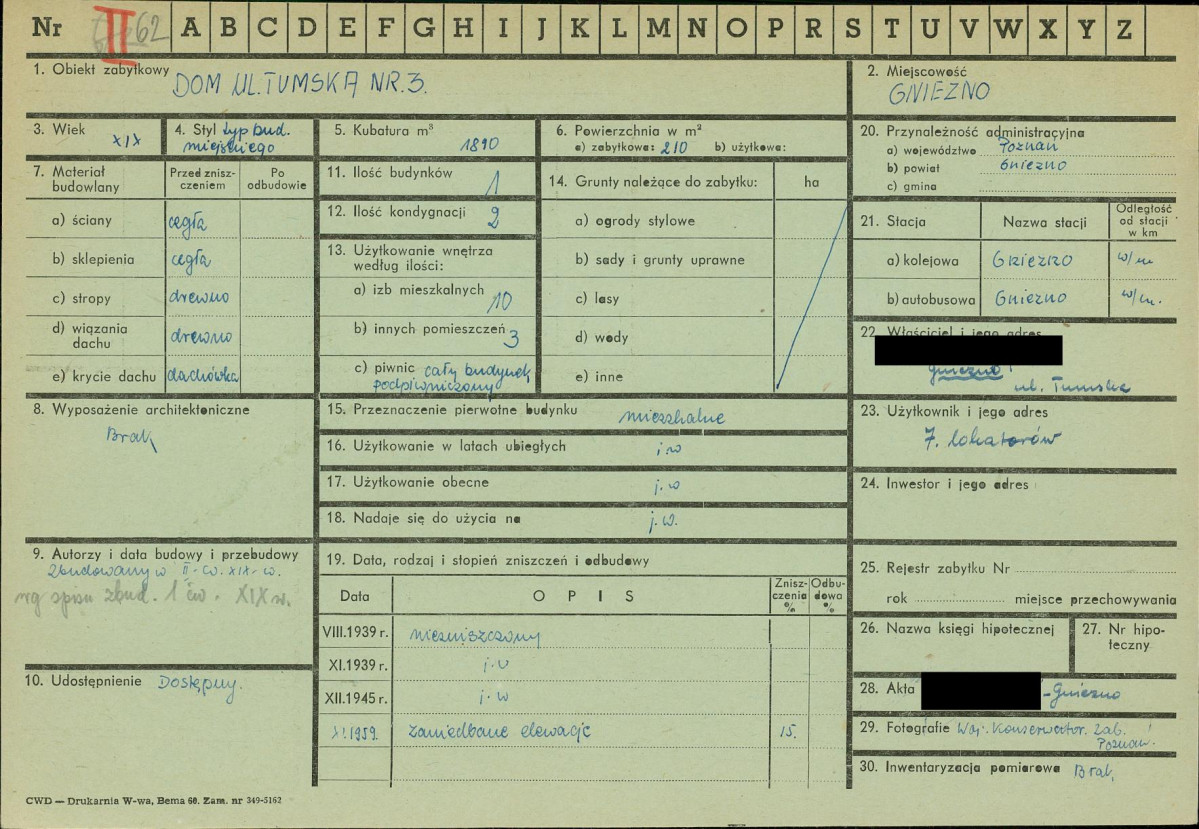 Nr II 62 A B C D E F G H I J K L M N O P R S T U V W X Y Z
1. Obiekt zabytkowy DOM UL. TUMSKA NR. 3.
2. Miejscowość
GNIEZNO
3. Wiek XIX
4. Styl typ bud.
miejskiego
5. Kubatura m³ 1890
6. Powierzchnia w m²
a) zabytkowa: 210 b) użytkowa:
7. Materiał budowlany
Przed zniszczeniem
Po odbudowie
a) ściany cegła
b) sklepienia cegła
c) stropy drewno
d) wiązania dachu drewno
e) krycie dachu dachówka
8. Wyposażenie architektoniczne
Brak
9. Autorzy i data budowy i przebudowy
Zbudowany w II-ćw. XIX-w.
wg spisu zbud. 1 ćw. XIX w.
10. Udostępnienie Dostępny.
11. Ilość budynków 1
12. Ilość kondygnacji 2
13. Użytkowanie wnętrza
według ilości:
a) izb mieszkalnych 10
b) innych pomieszczeń 3
c) piwnic cały budynek
podpiwniczony
14. Grunty należące do zabytku: ha
a) ogrody stylowe
b) sady i grunty uprawne
c) lasy
d) wody
e) inne
15. Przeznaczenie pierwotne budynku mieszkalne
16. Użytkowanie w latach ubiegłych j.w
17. Użytkowanie obecne j.w
18. Nadaje się do użycia na j.w.
19. Data, rodzaj i stopień zniszczeń i odbudowy
Data OPIS Zniszczenia % Odbudowa %
VIII.1939 r. niezniszczony
XI.1939 r. j.w
XII.1945 r. j.w
XI.1959. zaniedbane elewacje 15.
20. Przynależność administracyjna
a) województwo Poznań
b) powiat Gniezno
c) gmina
21. Stacja Nazwa stacji Odległość od stacji w km
a) kolejowa Gniezno w/m
b) autobusowa Gniezno w/m.
22. Właściciel i jego adres
Gniezno
ul. Tumska
23. Użytkownik i jego adres
7. lokatorów
24. Inwestor i jego adres
25. Rejestr zabytku Nr
rok miejsce przechowywania
26. Nazwa księgi hipotecznej
27. Nr hipoteczny
28. Akta -Gniezno
29. Fotografie Woj. Konserwator. Zab.
Poznań.
30. Inwentaryzacja pomiarowa Brak
CWD — Drukarnia W-wa, Bema 60. Zam. nr 349-5162